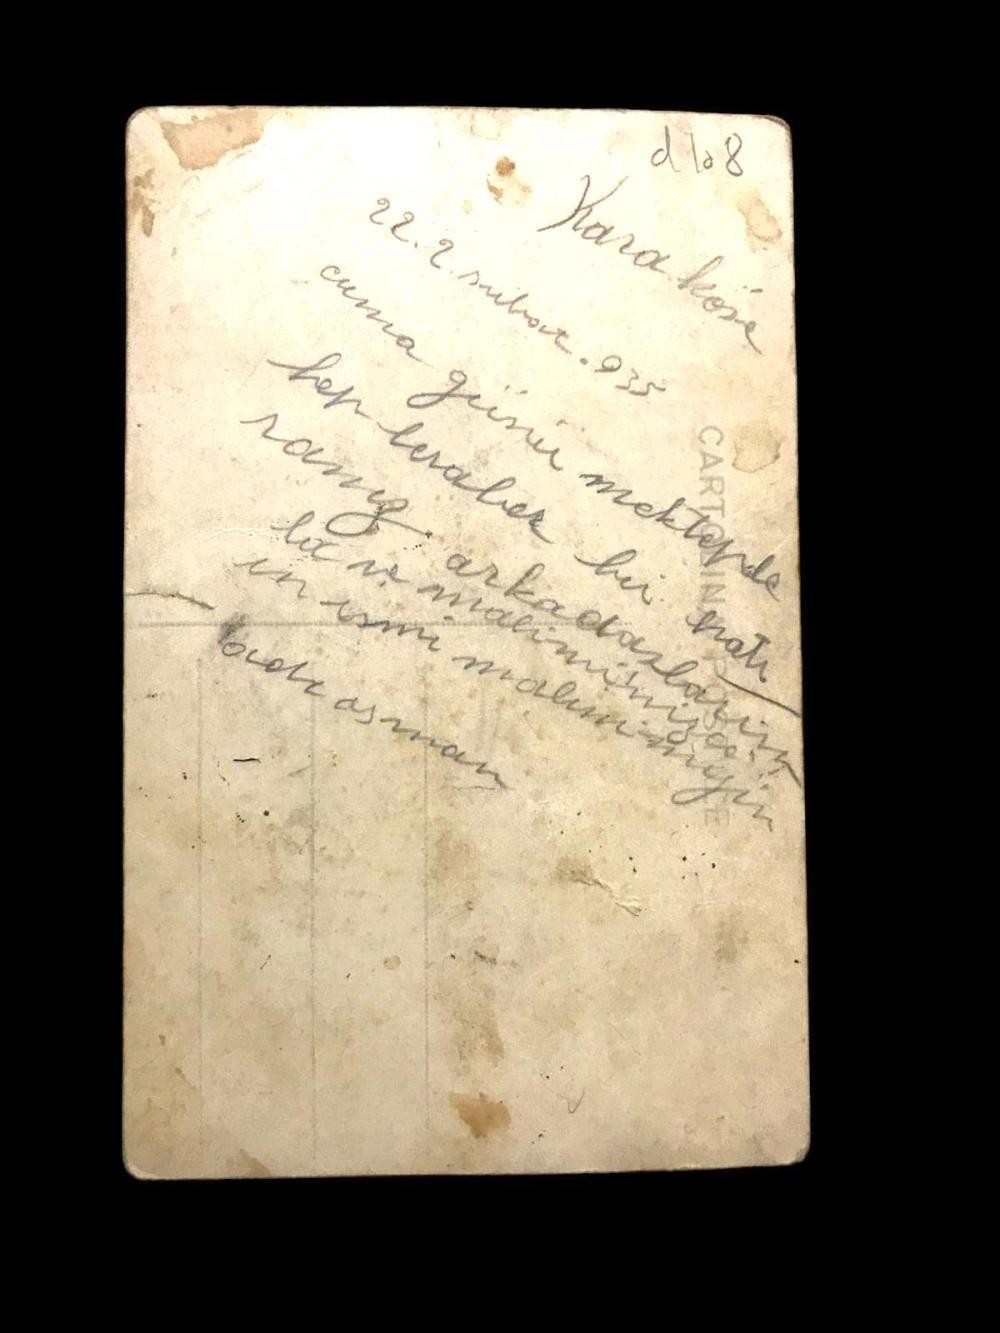 d 108
Karaköse
22. 2 subat. 935
cuma günü mektepde
hep beraber bir hatı
ramız. arkadaslarım
la ve malimimizle.
ın ismi malimimizin
bedi asman
CARTOLINA POSTALE